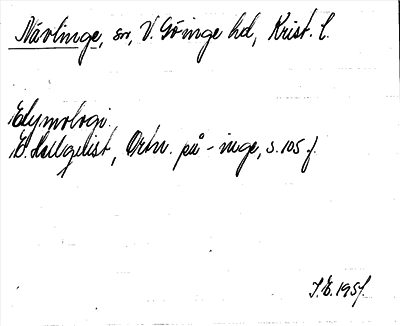 Nävlinge, sn, V. Göinge hd, Krist. l.
Etymologi.
E. Hellquist, Ortn. på -inge, s. 105 f.
S.E. 1951.